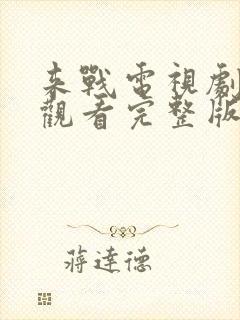 来戰電視劇
觀看完整版
蔣達德